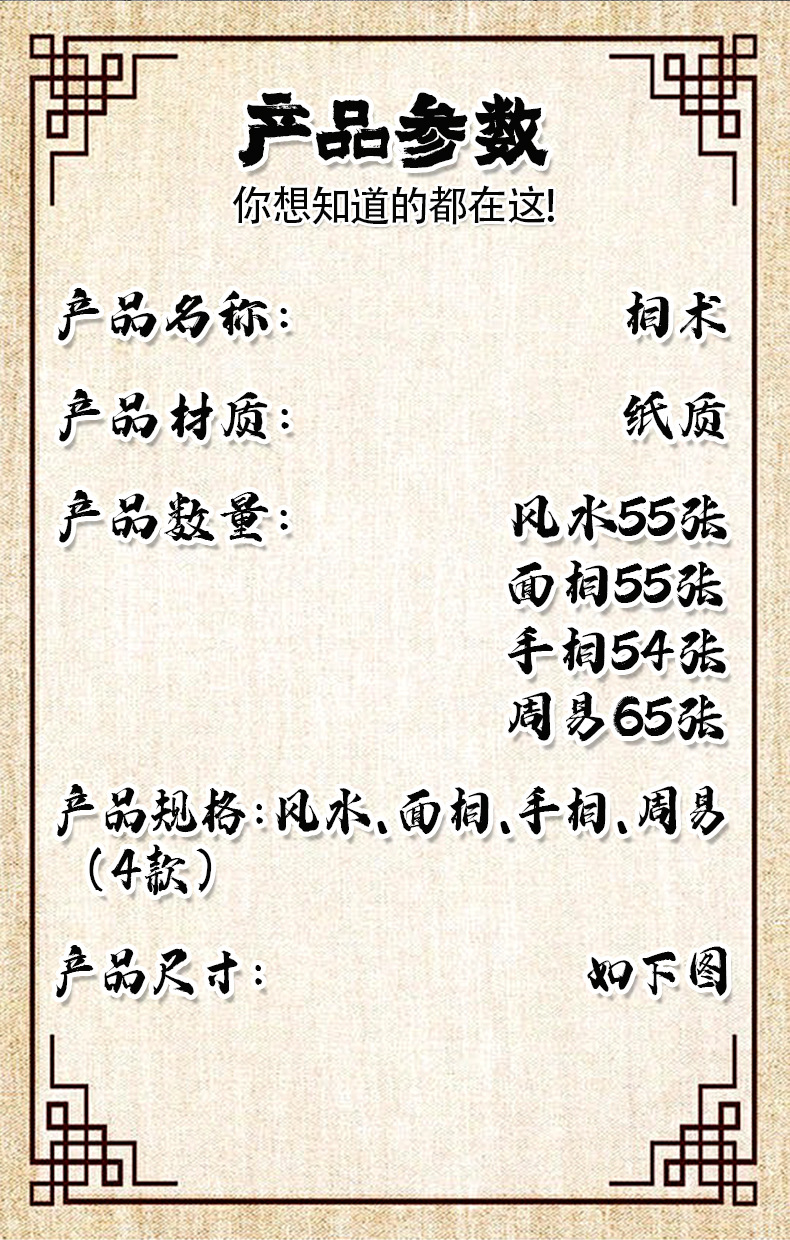 产品参数
你想知道的都在这!
产品名称: 相术
产品材质: 纸质
产品数量: 风水55张
面相55张
手相54张
周易65张
产品规格:风水、面相、手相、周易
(4款)
产品尺寸: 如下图